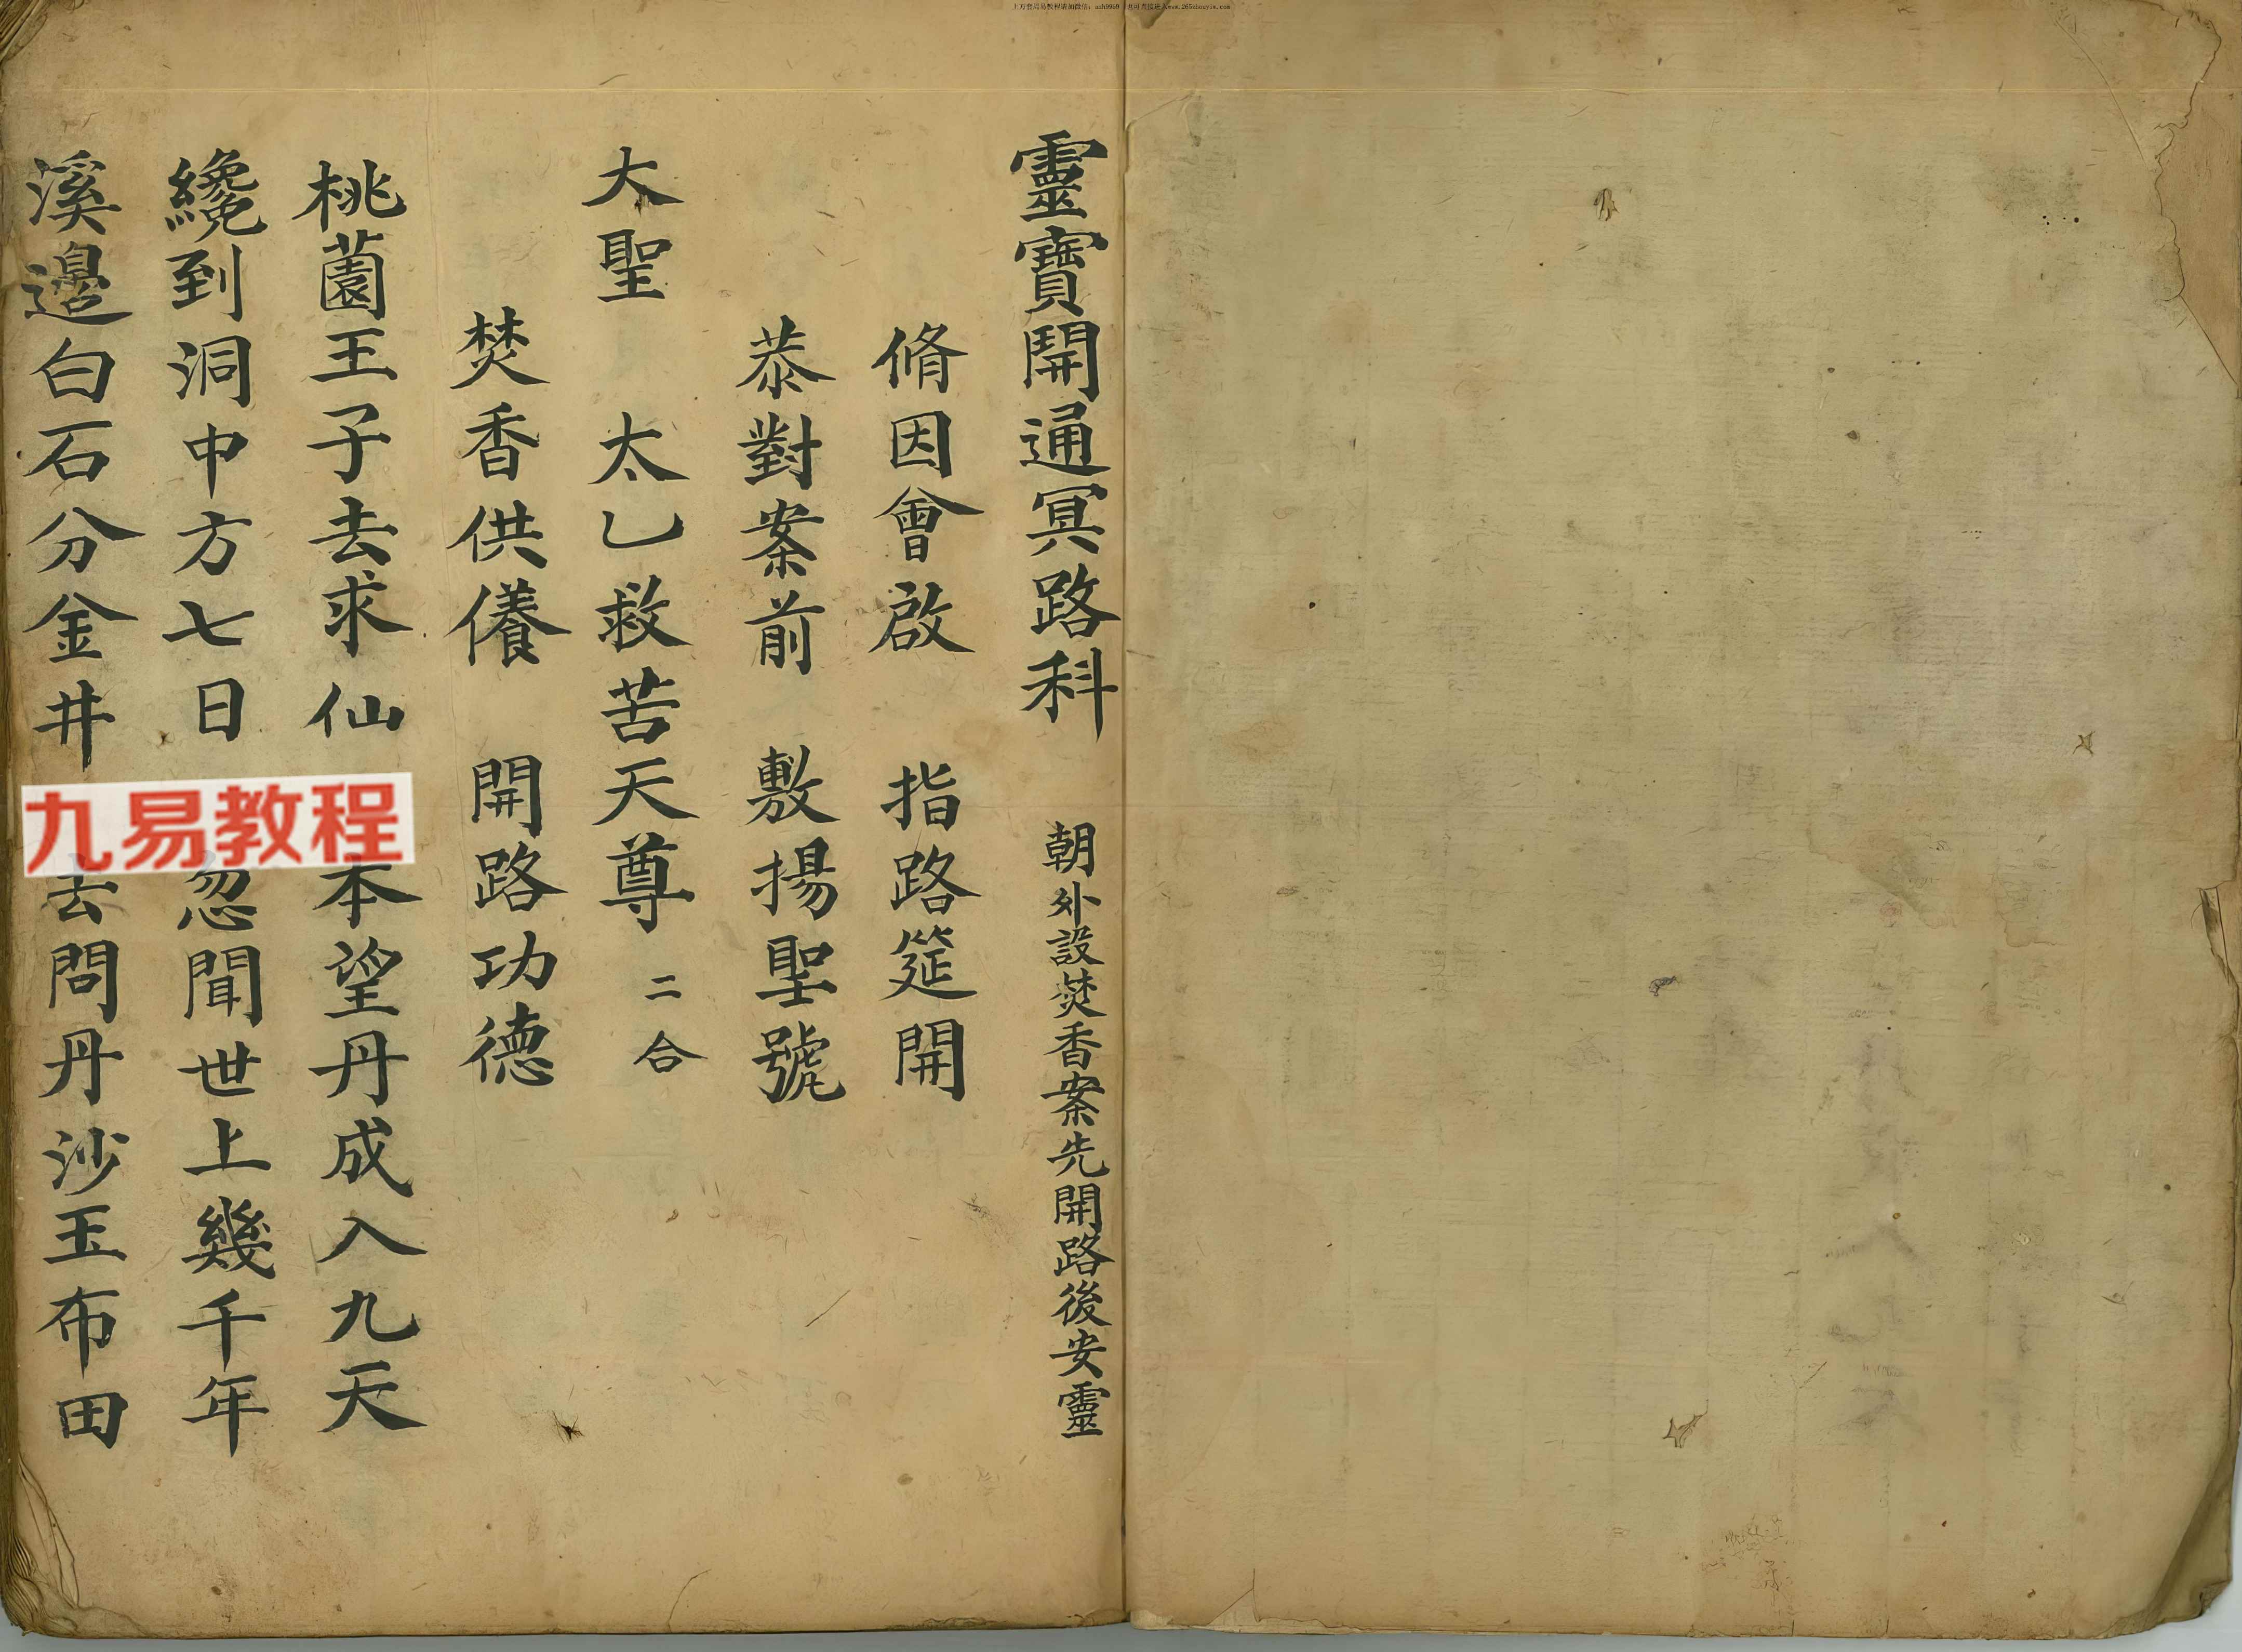 上万套周易教程请加微信：nzh9969 也可直接进入www.265zhouyiw.com
靈寶開通冥路科 朝外設焚香案先開路後安靈
脩因會啟 指路筵開
恭對案前 敷揚聖號
大聖 太乙救苦天尊 二合
焚香供養 開路功德
桃薗王子去求仙 本望丹成入九天
纔到洞中方七日 忽聞世上幾千年
溪邉白石分金井 去問丹沙玉布田
九易教程